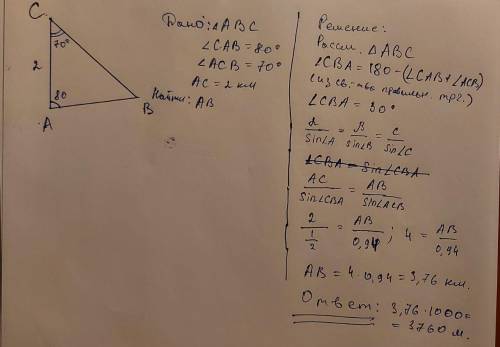 C
70°
2
80
A
B
Дано: △ABC
∠CAB = 80°
∠ACB = 70°
AC = 2 км
Найти: AB
Решение:
Рассм. △ABC
∠CBA = 180 - (∠CAB + ∠ACB)
(из св-тва правильн. трг.)
∠CBA = 30°
a/sin∠A = B/sin∠B = c/sin∠C
∠CBA = Sin∠CBA
AC/sin∠CBA = AB/sin∠ACB
2/(1/2) = AB/0,94; 4 = AB/0,94
AB = 4 · 0,94 = 3,76 км.
Ответ: 3,76 · 1000 =
= 3760 м.